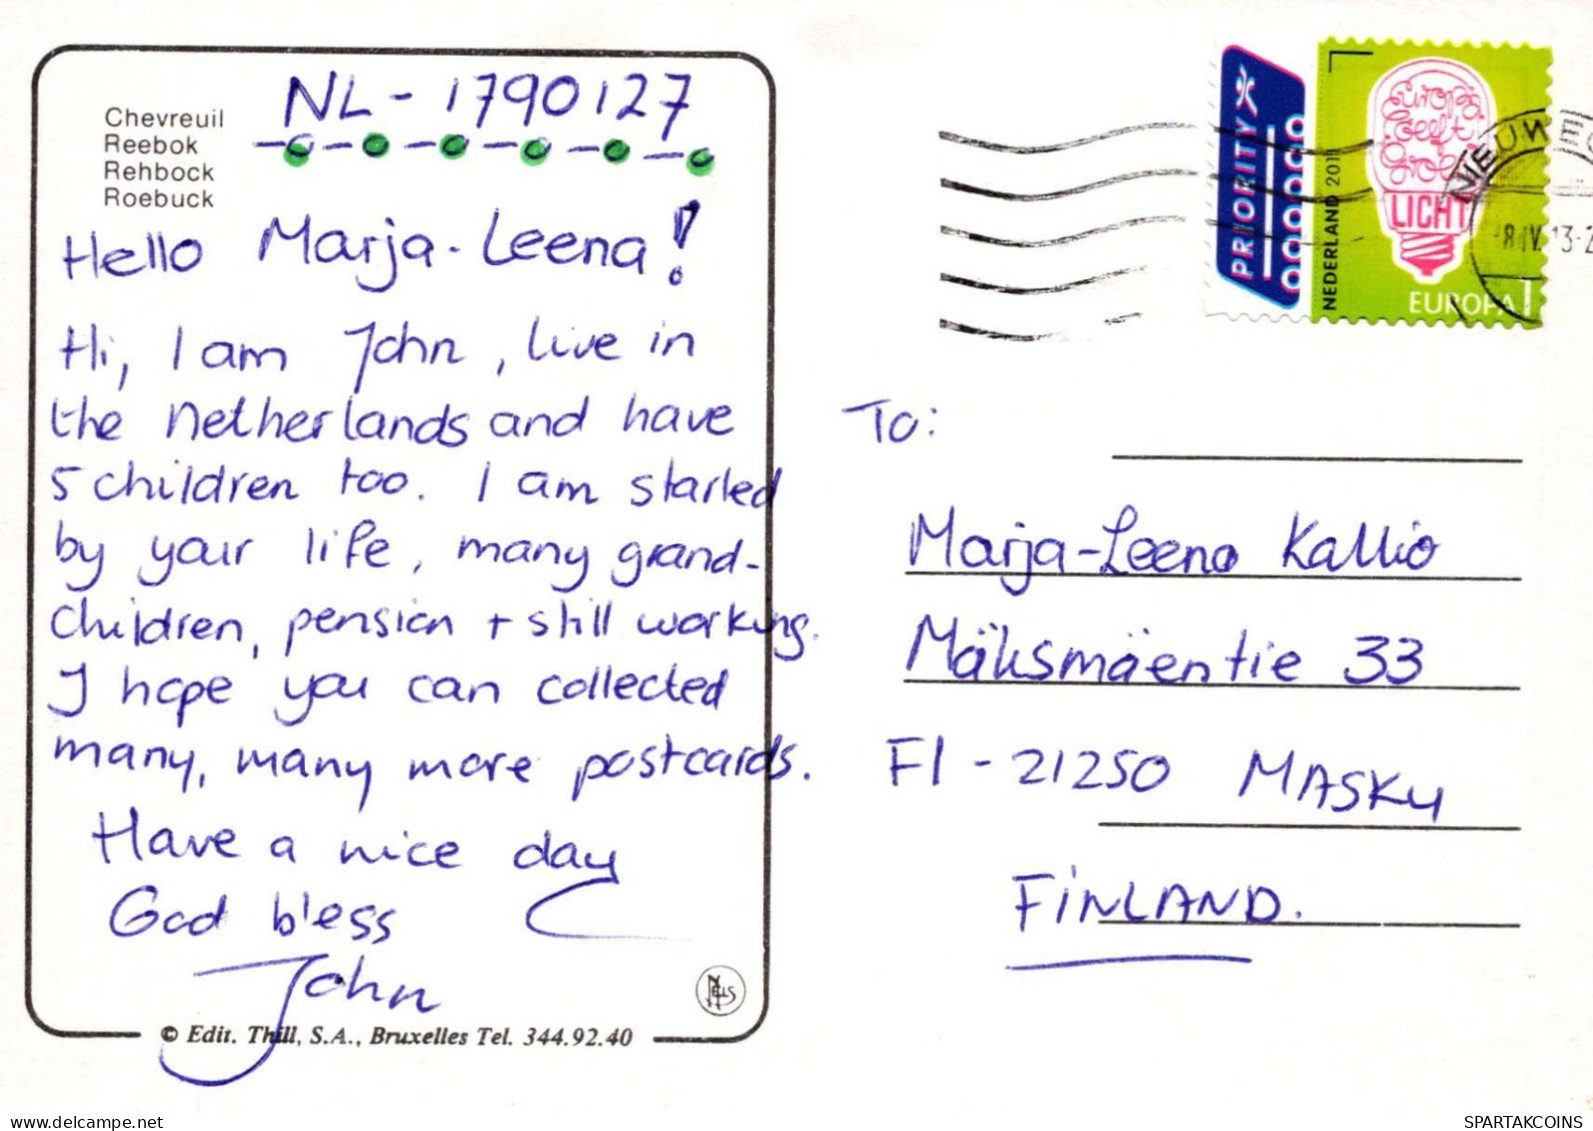 Chevreuil
Reebok
Rehbock
Roebuck
NL-1790127
Hello Marja-Leena!
Hi, I am John, live in
the Netherlands and have
5 children too. I am starled
by your life, many grand-
children, pension + still working.
I hope you can collected
many, many more postcards.
Have a nice day
God bless
John
© Edit. Thill, S.A., Bruxelles Tel. 344.92.40
NELS
PRIORITY
NEDERLAND 2011
Europa
geeft
groen
LICHT
EUROPA 1
NIEUWE
8.IV.13-2
To:
Marja-Leena Kallio
Mäksmäentie 33
FI-21250 MASKU
FINLAND.
SPARTAKCOINS